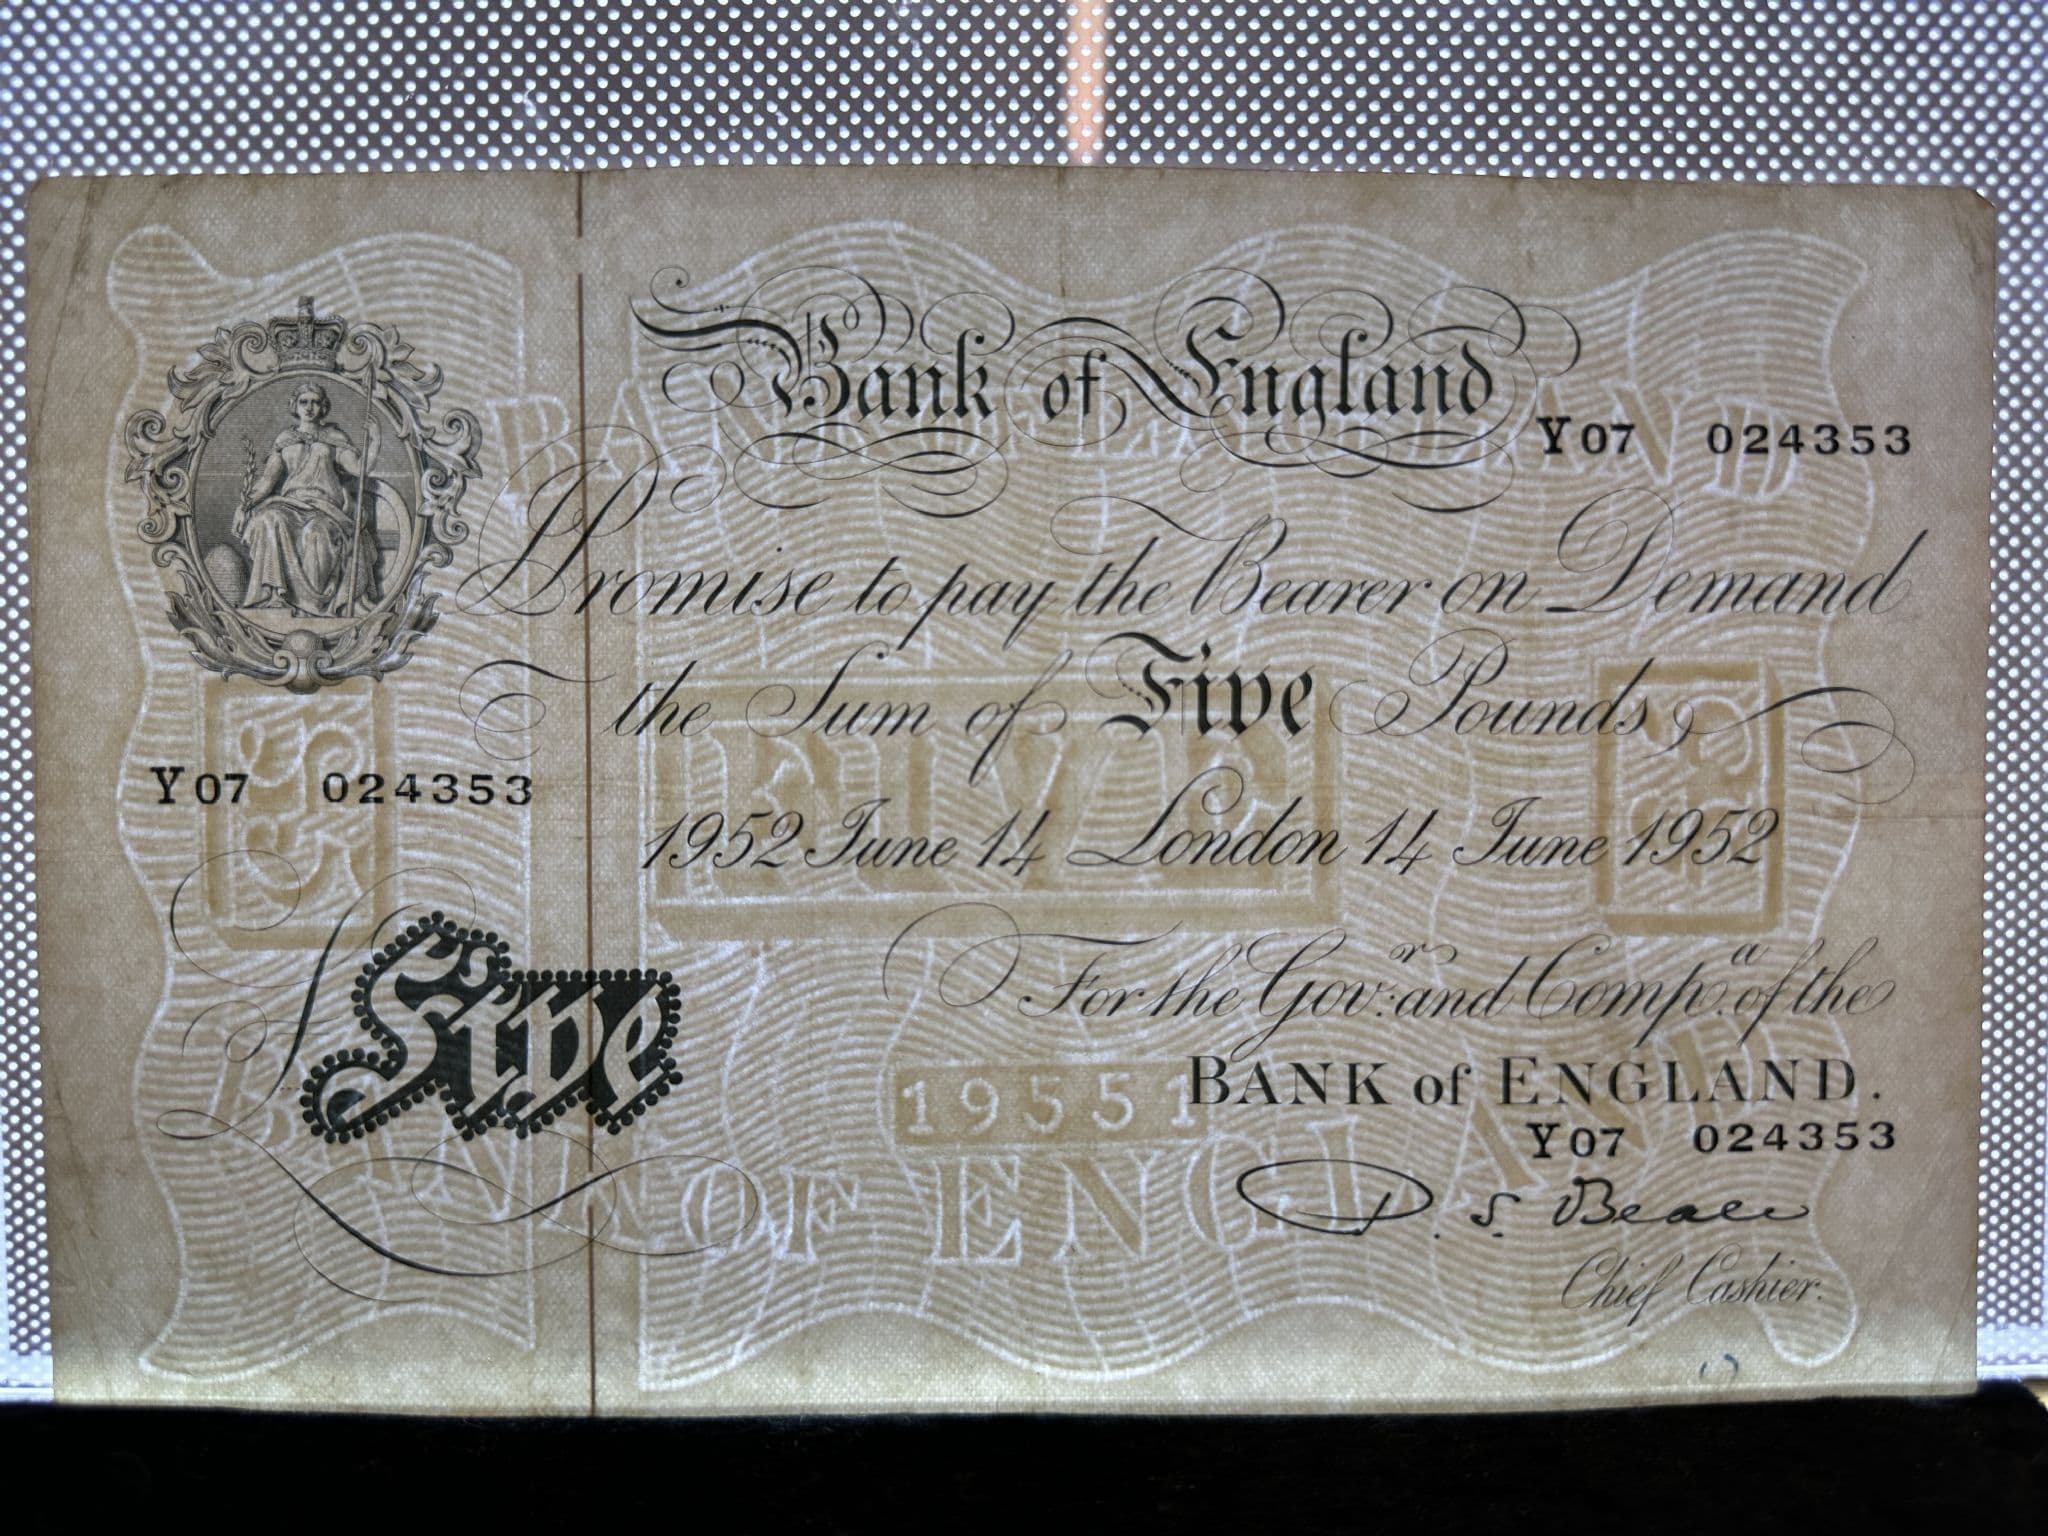 Bank of England
BANK OF ENGLAND
Y07 024353
I Promise to pay the Bearer on Demand
the Sum of Five Pounds
£5 FIVE £5
Y07 024353
1952 June 14 London 14 June 1952
For the Gov.r and Comp.a of the
Five
19551
BANK of ENGLAND.
Y07 024353
BANK OF ENGLAND
P. S. Beale
Chief Cashier.